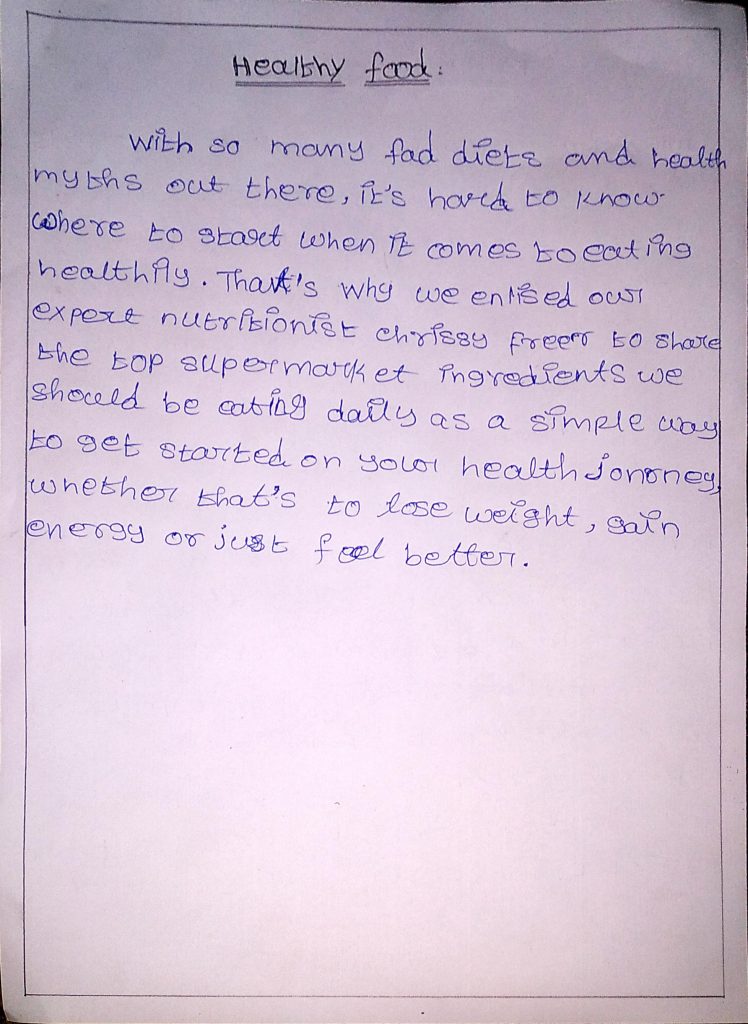 Healthy food:
With so many fad diets and health
myths out there, it's hard to know
where to start when it comes to eating
healthily. That's why we enlised our
expert nutritionist chrissy freer to share
the top supermarket ingredients we
should be eating daily as a simple way
to get started on your health jonrney,
whether that's to lose weight, gain
energy or just feel better.